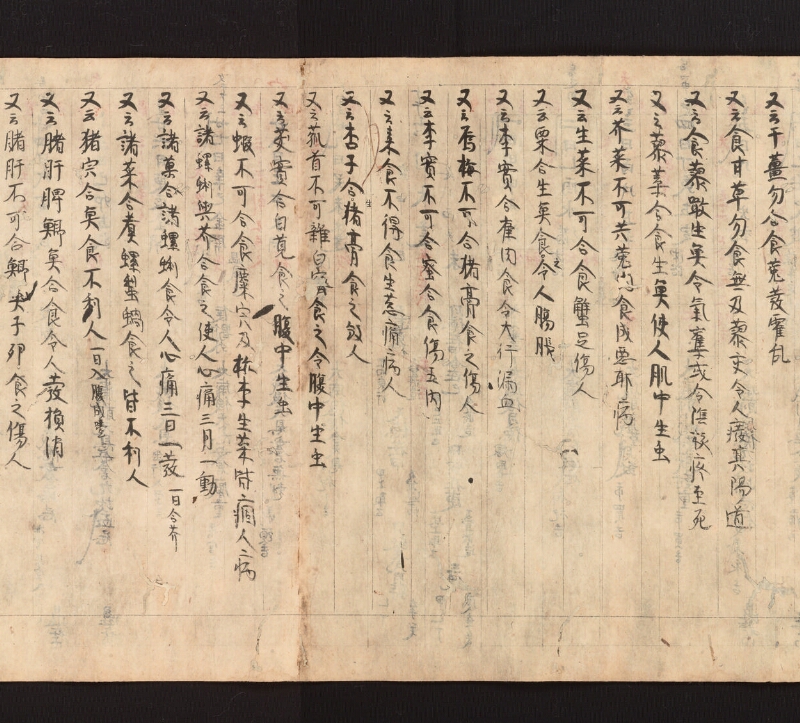 又云干薑勿合食菟發霍乱
又云食甘草勿食無及藜交令人癈其陽道
又云食藜羹生魚令氣奪或令陰核疼至死
又云藜羹合食生魚使人肌中生虫
又云芥菜不可共菟宍食成惡耶病
又云生菜不可合食蟹足傷人
又云栗合生魚食之令人腸脹
又云李實合雀肉食令大行漏血
又云烏梅不可合猪膏食之傷人
又云李實不可合蜜合食傷五内
又云棗食不得食生葱痛病人
又云杏子合生猪膏食之敓人
又云菰首不可雜白蜜食之令腹中生虫
又云芰實合白莧食之腹中生虫
又云蝦不可合食麋宍及梅李生菜皆痼人病
又云諸螺蜊與芥合食之使人心痛三月一動
又云諸菓合諸螺蜊食令人心痛三日一發 一日合芥
又云諸菜合煮螺蜊蝸食之皆不利人
又云猪宍合魚食不利人 一曰入腹成噎
又云猪肝脾鯽魚合食令人發損消
又云猪肝不可合鯽魚子卵食之傷人